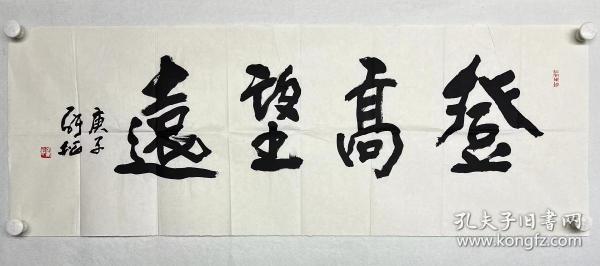 登高望遠
庚子
孔夫子旧书网
www.kongfz.com